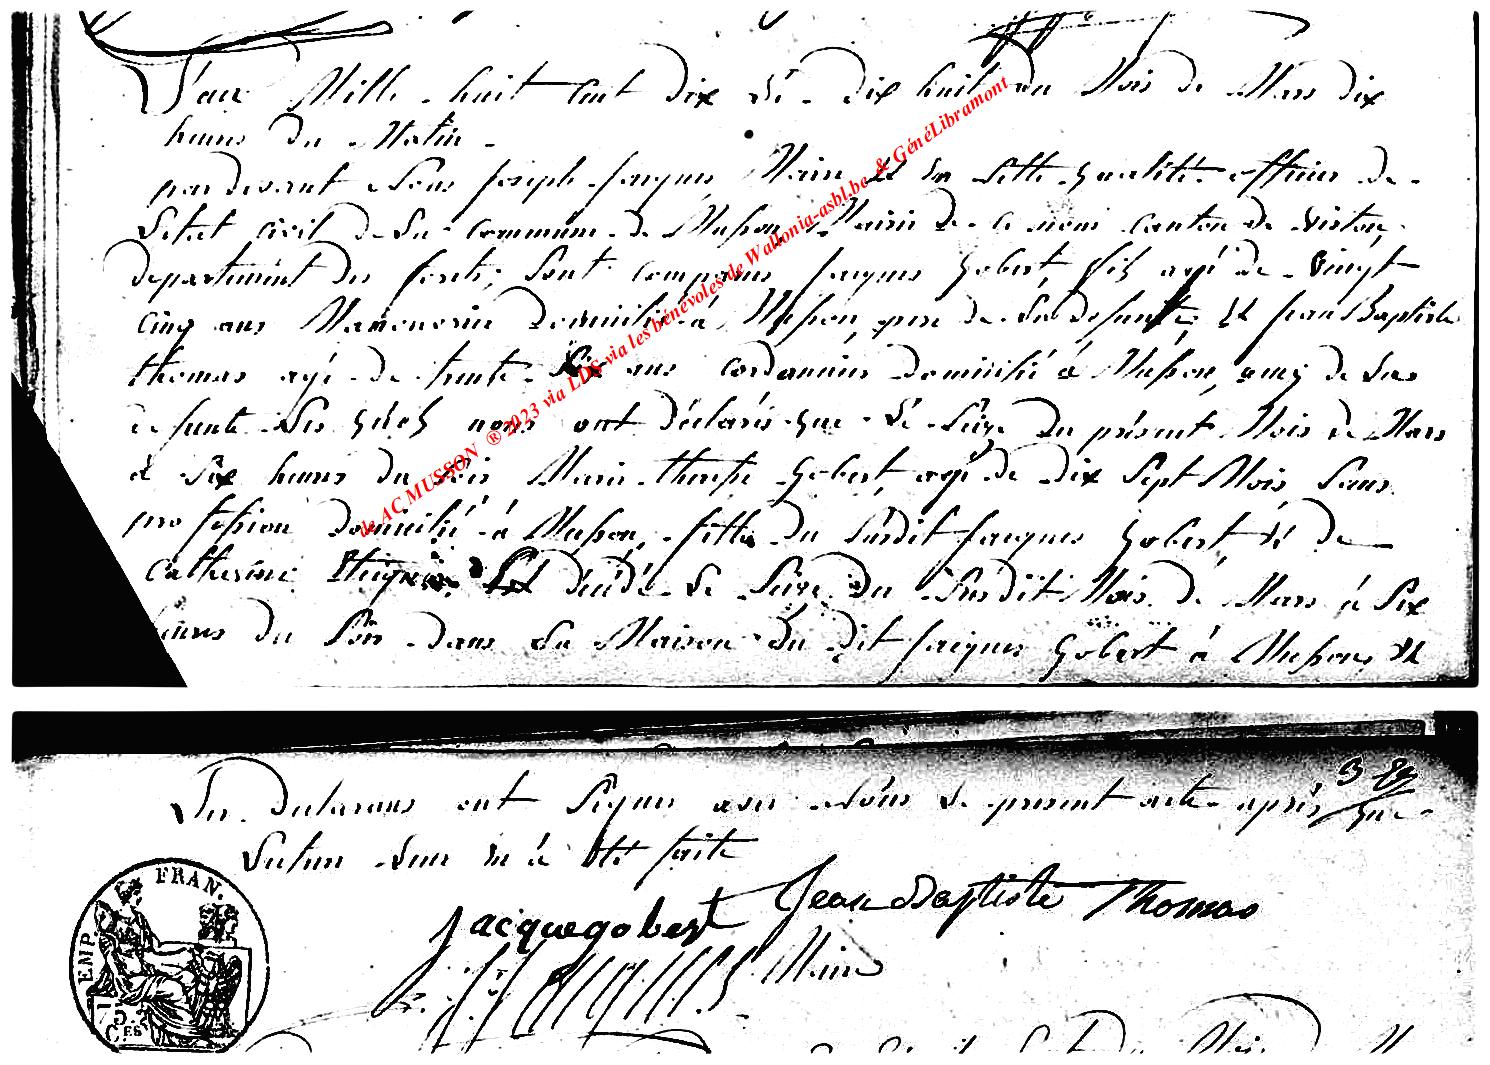 L'an Mille huit cent dix Le dix huit du Mois de Mars dix
heures du Matin
par devant Nous Joseph Jacques Maire et en Sette qualité officier de
Letat civil de La commune de Musson Mairie de ce nom canton de virton
departement des forets, Sont comparus Jacques Gobert fils agé de vingt
cinq ans Manoeuvrier Domicilié à Musson, pere de La defunte et Jean Baptiste
thomas agé de trente Six ans cordonnier domicilié à Musson, amy de La
defunte Les quels nous ont déclaré que Le Seize Du présent Mois de Mars
à Six heures du Soir Marie therese Gobert, agé de dix Sept Mois Sans
profession domicilié à Musson, fille du Surdit Jacques Gobert et de
Catherine est décédé Le Seize Du Surdit Mois de Mars à Six
heures du Soir dans La Maison du dit Jacques Gobert à Musson et
3
Les Declarans ont Signé avec Nous Le present acte après que
Lecture Leur en à été faite
Jacque gobert Jean Baptiste Thomas
Maire
EMP FRAN.
75.
C.ES
de AC MUSSON ® 2023 via LDS via les bénévoles de Wallonia-asbl.be & GénéLibramont